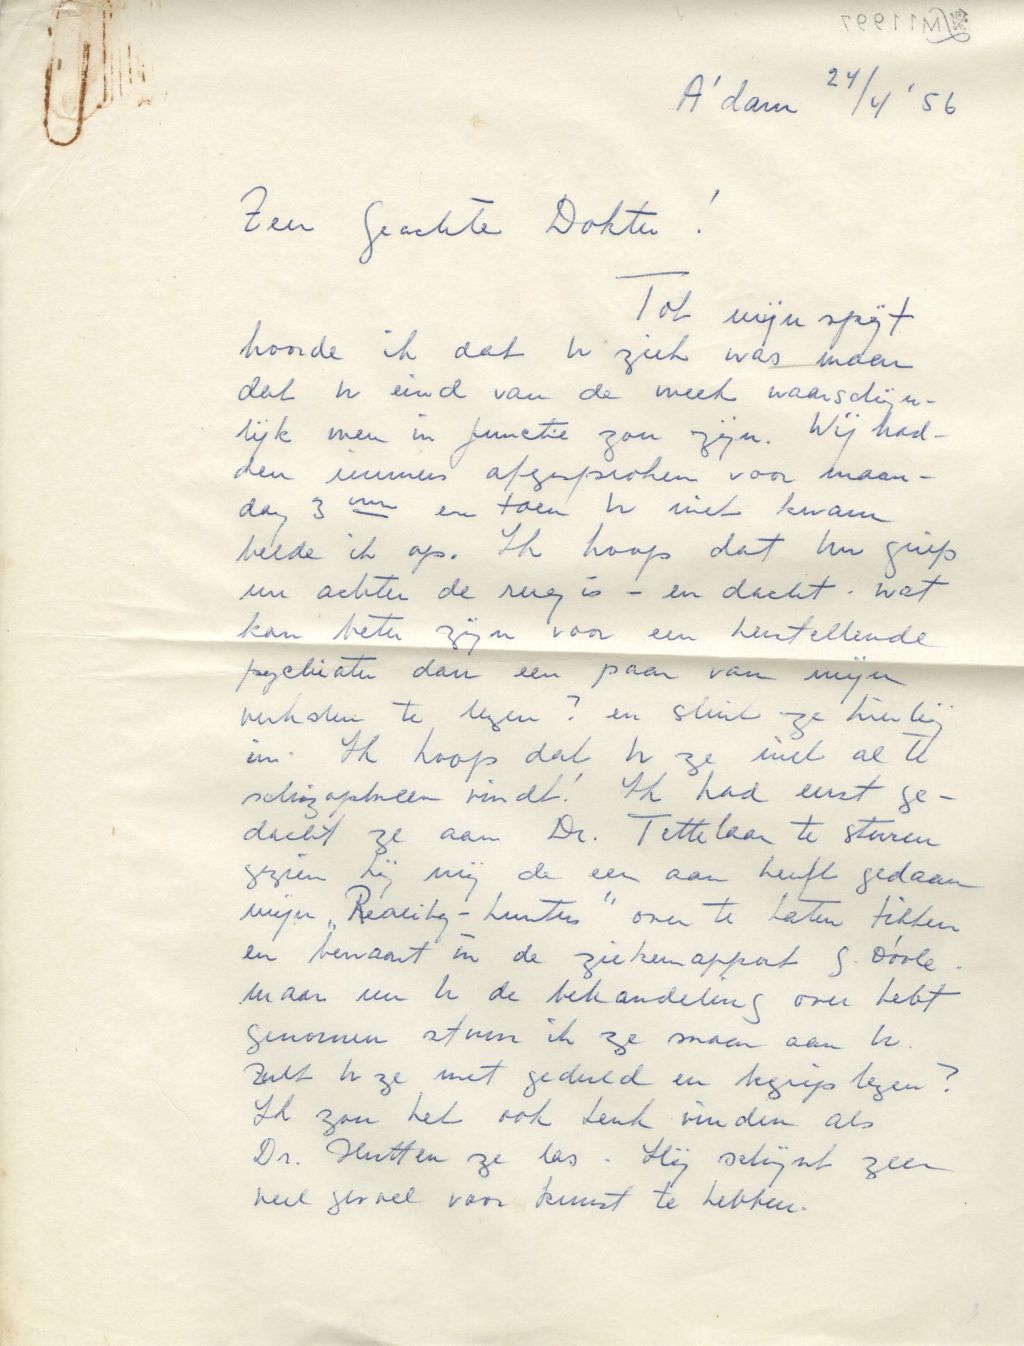 LM11997
A'dam 24/4 '56
Zeer Geachte Dokter!
Tot mijn spijt
hoorde ik dat U ziek was maar
dat U eind van de week waarschijn-
lijk weer in functie zou zijn. Wij had-
den immers afgesproken voor maan-
dag 3 uur en toen U niet kwam
belde ik op. Ik hoop dat Uw griep
nu achter de rug is - en dacht - wat
kan beter zijn voor een herstellende
psychiater dan een paar van mijn
verhalen te lezen? en sluit ze hierbij
in. Ik hoop dat U ze niet al te
schizophreen vindt! Ik had eerst ge-
dacht ze aan Dr. Tettelaar te sturen
gezien hij mij de eer aan heeft gedaan
mijn „Reality-hunters" over te laten tikken
en bewaart in de ziekenrapport
maar nu U de behandeling over hebt
genomen stuur ik ze maar aan U.
Zult U ze met geduld en begrip lezen?
Ik zou het ook leuk vinden als
Dr. Hutten ze las. Hij schijnt zeer
veel gevoel voor kunst te hebben.